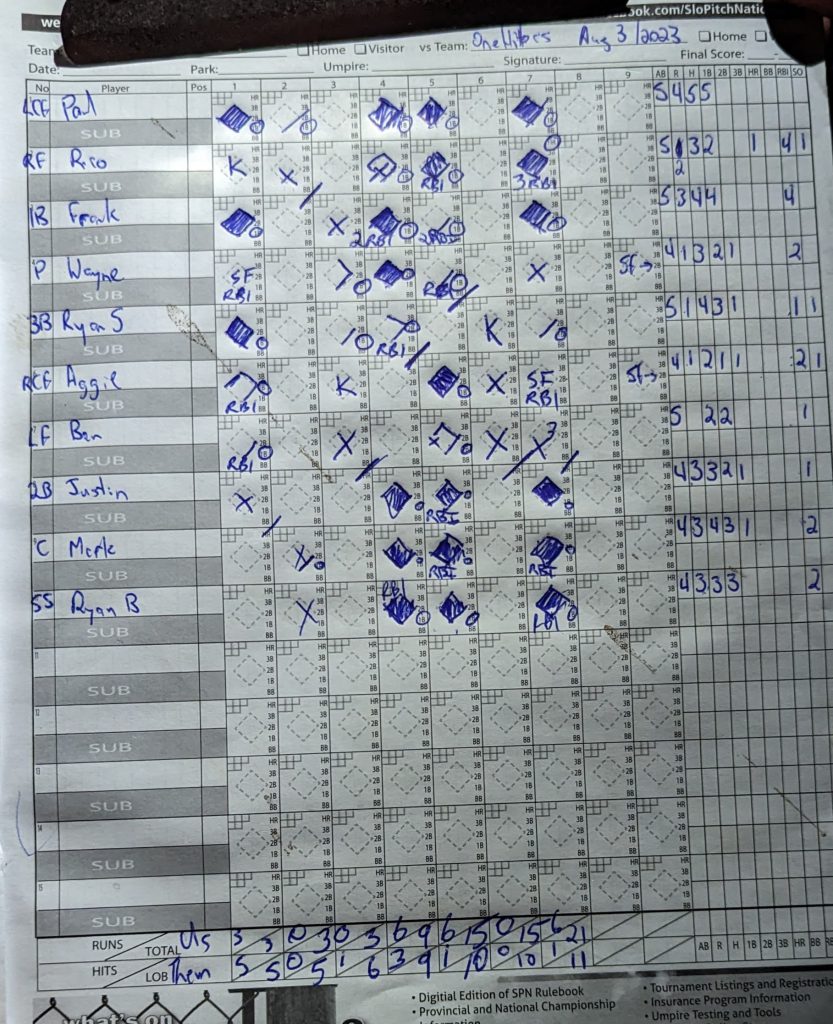 we
book.com/SloPitchNatio
Team
Home Visitor vs Team: One Hitters Aug 3/2023 Home
Date: Park: Umpire: Signature: Final Score: -
No Player Pos 1 2 3 4 5 6 7 8 9 AB R H 1B 2B 3B HR BB RBI SO
LCF Paul 5 4 5 5
SUB
RF Rico K X RBI 3RBI 5 1 3 2 1 4 1
SUB 2
1B Frank X 2RBI 2RBI 5 3 4 4 4
SUB
P Wayne SF RBI RBI X SF→ 4 1 3 2 1 2
SUB
3B Ryan S RBI K 5 1 4 3 1 1 1
SUB
RCF Aggie RBI K X SF RBI SF→ 4 1 2 1 1 2 1
SUB
LF Ben RBI X X X 3 5 2 2 1
SUB
2B Justin X RBI 4 3 3 2 1 1
SUB
C Mark X RBI RBI 4 3 4 3 1 2
SUB
SS Ryan B X RBI RBI 4 3 3 3 2
SUB
11
SUB
12
SUB
13
SUB
14
SUB
15
SUB
RUNS TOTAL Us 3 3 0 3 0 3 6 9 6 15 0 15 6 21
HITS LOB Them 5 5 0 5 1 6 3 9 1 10 0 10 1 11 AB R H 1B 2B 3B HR BB RB
what's on
• Digitial Edition of SPN Rulebook
• Provincial and National Championship
Information
• Tournament Listings and Registratio
• Insurance Program Information
• Umpire Testing and Tools